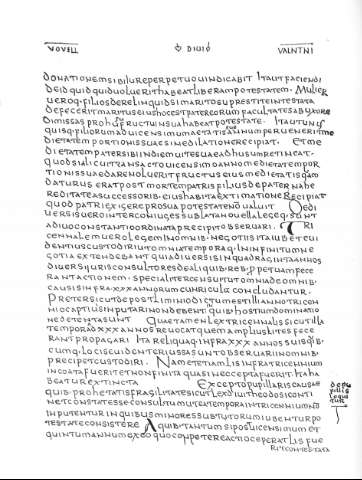 NOVELL D DIUIO VALNTNI
DONATIONEM SIBI IURE PERPETUO UINDICABIT ITA UT FACIENDI
DE ID QUID QUID UOLUERIT HABEAT LIBERAM POTESTATEM. MULIER
UERO Q FILIOS DERELINQUID SI MARITO SUPRESTITE INTESTATA
DEFECERIT MARITUS EIUS PATER EORUM FACULTATES AB UXORE
DIMISSAS PRO FRUCTU IN SUA HABEAT POTESTATE. ITA UT UNUS
QUISQ FILIORUM AD UICENSIMUM AETATIS ANNUM PERUENERIT ME
DIETATEM PORTIONIS SUAE SI MEDIATIONE RECIPIAT ET ME
DIETATEM PATER SIBI INDEMI UITE SUAE ADHUSUM RETINEAT
QUOD SI ALICUI TRANSACTO UICENSIMO ANNO MEDIETATE POR
TIONIS SUAE DARE NOLUERIT FRUCTUS EIUS MEDIETATIS
DATURUS ERAT POST MORTEM PATRIS FILIUS DE PATERNA HE
REDITATE A SUCCESSORIB EIUS HABITA EXTIMATIONE RECIPIAT
QUOD PATRI EXIGERE PRO SUA POTESTATE NON UALUIT DE DI
UERSIS UERO INTER CONIUGES SUBLATA NOUELLA LEGE Q SUNT
AD IUO CONSTANTI ORDINATA PRECIPIT OBSERUARI. TRI
CENNALE MUERO LEGEM HOMNIB NEGOTIIS ITA IUBET EUI
DENTIUS CUSTODIRI UT OMNIA TEMPORA Q IN INFINITUM NE
GOTIA EXTENDEBANT QUIA DIUERSI IN QUADRAGINTA ANNOS
DIUERSI IURIS CONSULTORES DE ALIQUIB REB PERPETUAM FECE
RANT ACTIONEM SPECIALITER CENSUIT UT OMNIA DE OMNIB
CAUSIS INFRA XXX ANNORUM CURRICULA CONCLUDANTUR.
PRETERSI CUT DE POSTLIMINIO DICTUM EST ILLI ANNO TRICEN
NIO CAPTIUIS INPUTARI NON DEBENT QUIB HOSTIUM DOMINATIO
NE DETENTA SUNT QUAE TAMEN LEX TRICENNALIS SICUT ILLA
TEMPORA DXXX ANNOS REUOCAT QUEM AMPLIUS LITES FECE
RANT PROPAGARI ITA RELIQUA INFRA XXX ANNOS SUIS QIB
CUMQ LOCIS EUIDENTER IUSSA SUNT OBSERUARI IN OMNIB
PRECIPIT CUSTODIRI. NAM ET FAMILIS INFRA TRICENNIUM
INCOATA FUERIT ET NON FINITA QUASI NEC COEPTA FUERIT ITA HA
BEATUR EXTINCTA EXCEPTO PUPILLARIS CAUSAE
QUIB PRO HETATIS FRAGILITATE SICUT LEX DIUI THEODOSI CONTI
NET CONSTAT ESSE CONSULTUM UT CETERA TEMPORA INTRICENNIUM
INPUTENTUR IN QUIB US MINORES SUB TUTORUM IUBENTUR PO
TESTATE CONSISTERE. A QUIB TANTUM SI POST UICENSIMUM ET
QUINTUM ANNUM EX EO QUO COMPETERE ACTIO CEPERAT LIS FUE
RIT CONTESTATA
DE PU
PILLIS
LOQUI
TUR